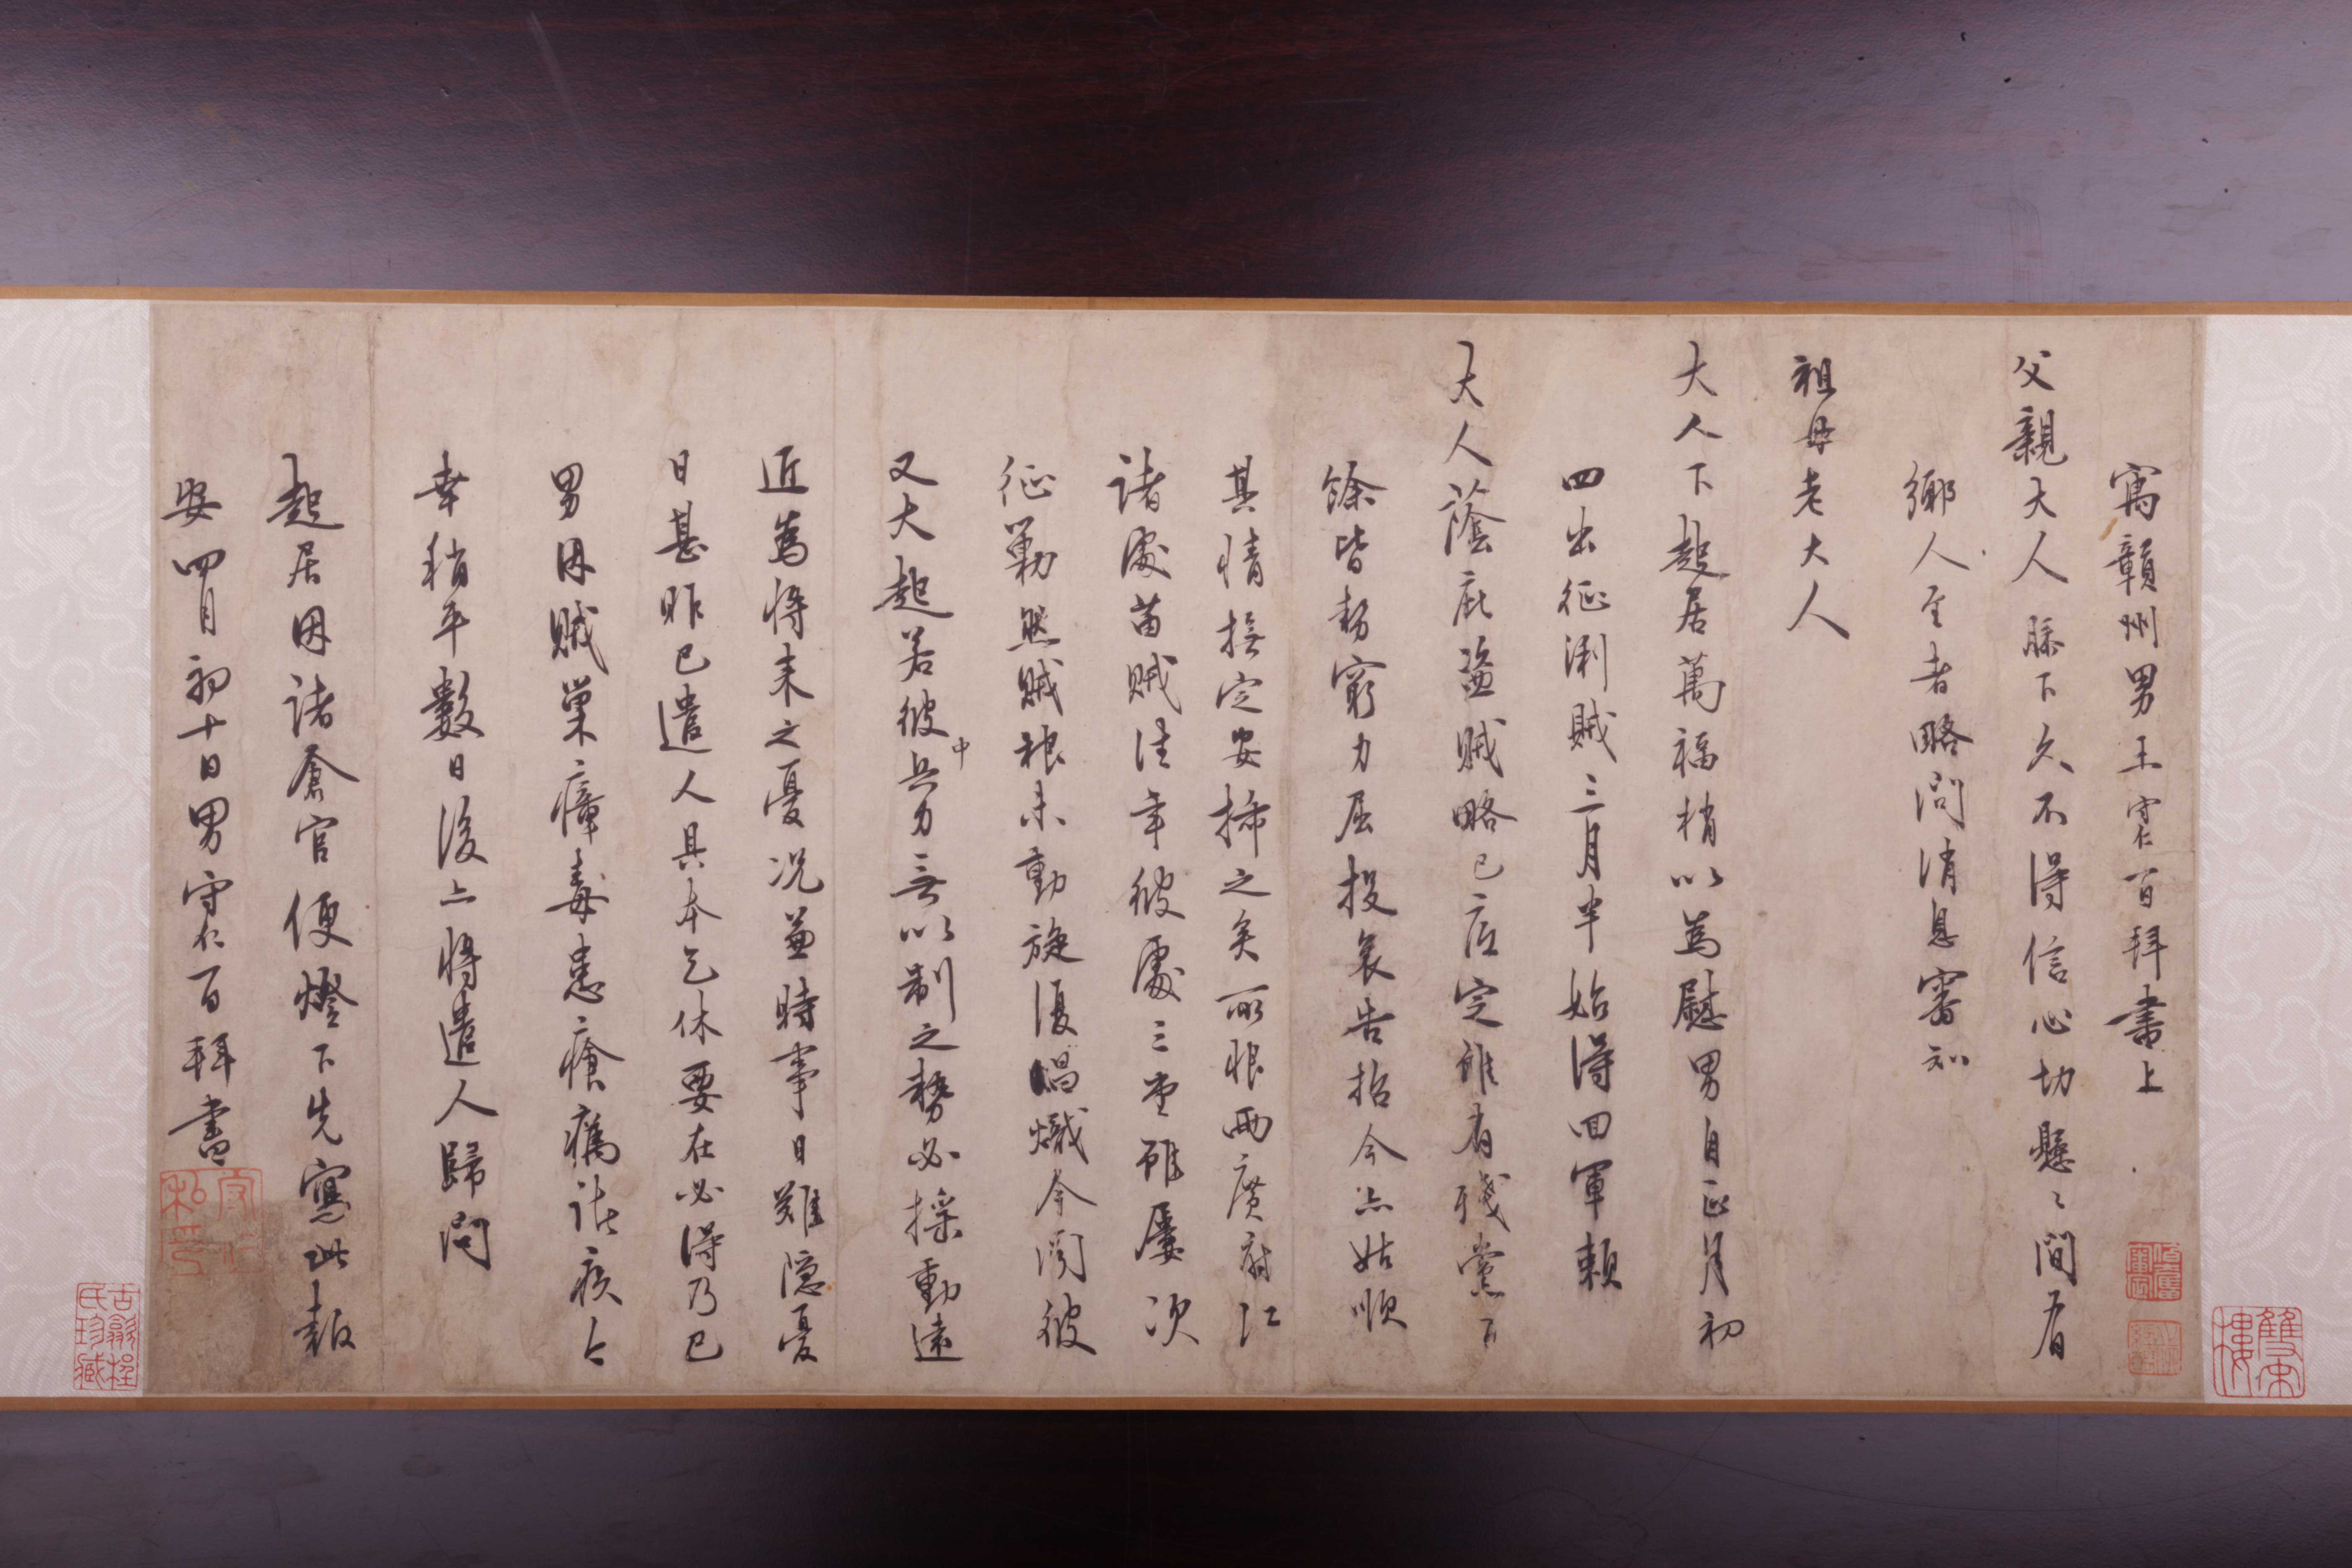 寓贛州男王守仁百拜書上
父親大人膝下久不得信心切懸〻間有
鄉人至者略問消息審知
祖母老大人
大人下起居萬福稍以為慰男自正月初
四出征浰賊三月半始得回軍賴
大人蔭庇盜賊略已底定雖有殘黨百
餘皆勢窮力屈投哀告招今亦姑順
其情撫定安插之矣所恨兩廣府江
諸處苗賊往年彼處三堂雖屢次
征勦然賊根未動旋復倡熾今聞彼
又大起若彼中兵力無以制之勢必搖動遠
近為將來之憂況兼時事日難隱憂
日甚昨已遣人具本乞休要在必得乃已
男因賊巢瘴毒患瘡癘諸疾今
幸稍平數日後亦將遣人歸問
起居因諸倉官便燈下先寫此報
安四月初十日男守仁百拜書
古歙程氏珍藏
雙宋樓